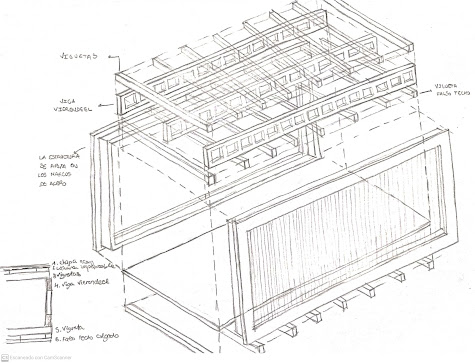 VIGUETAS
VIGA
VIERENDEEL
VIGUETA
FALSO TECHO
LA ESTRUCTURA
SE APOYA EN
LOS MARCOS
DE ACERO
1. chapa
3 viguetas
4. Viga vierendeel
5. Vigueta
6. Falso techo colgado
Escaneado con CamScanner